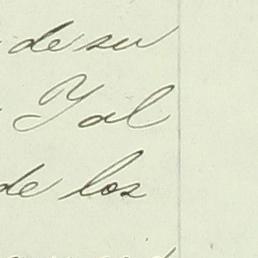 de su
Y al
de los